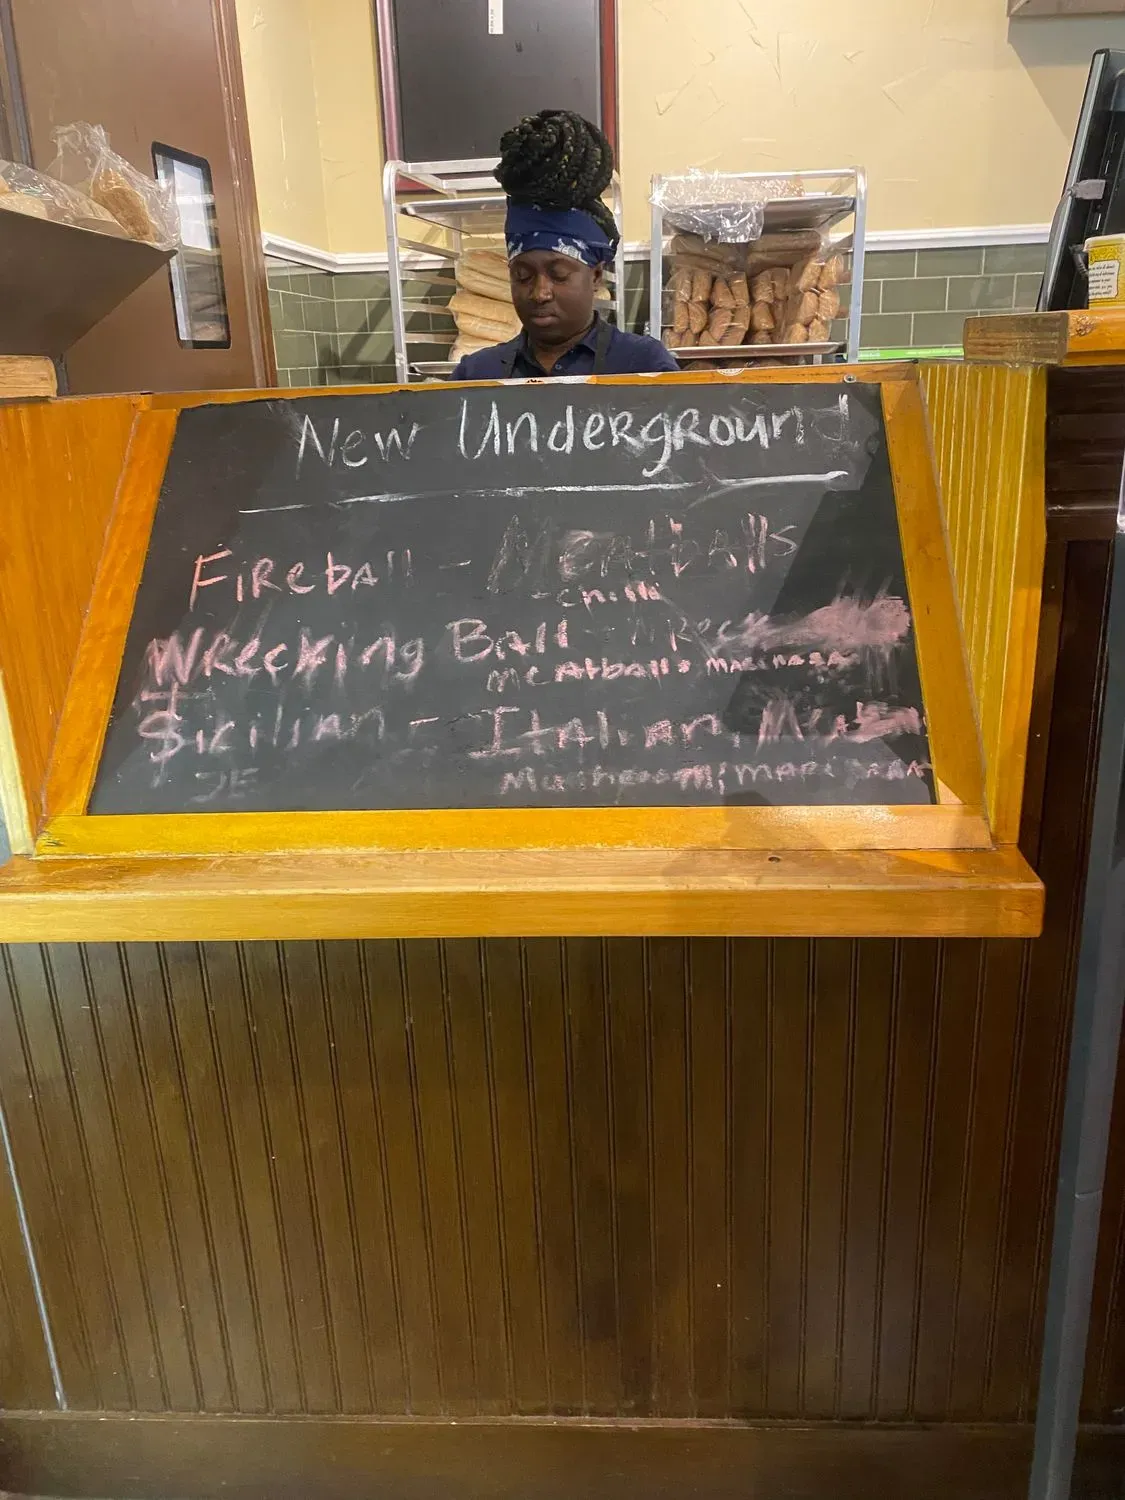 New Underground
Fireball - Meatballs
- chili
Wrecking Ball - Wreck
Meatballs Marinara
Sicilian - Italian, Meat
Mushroom, Marinara